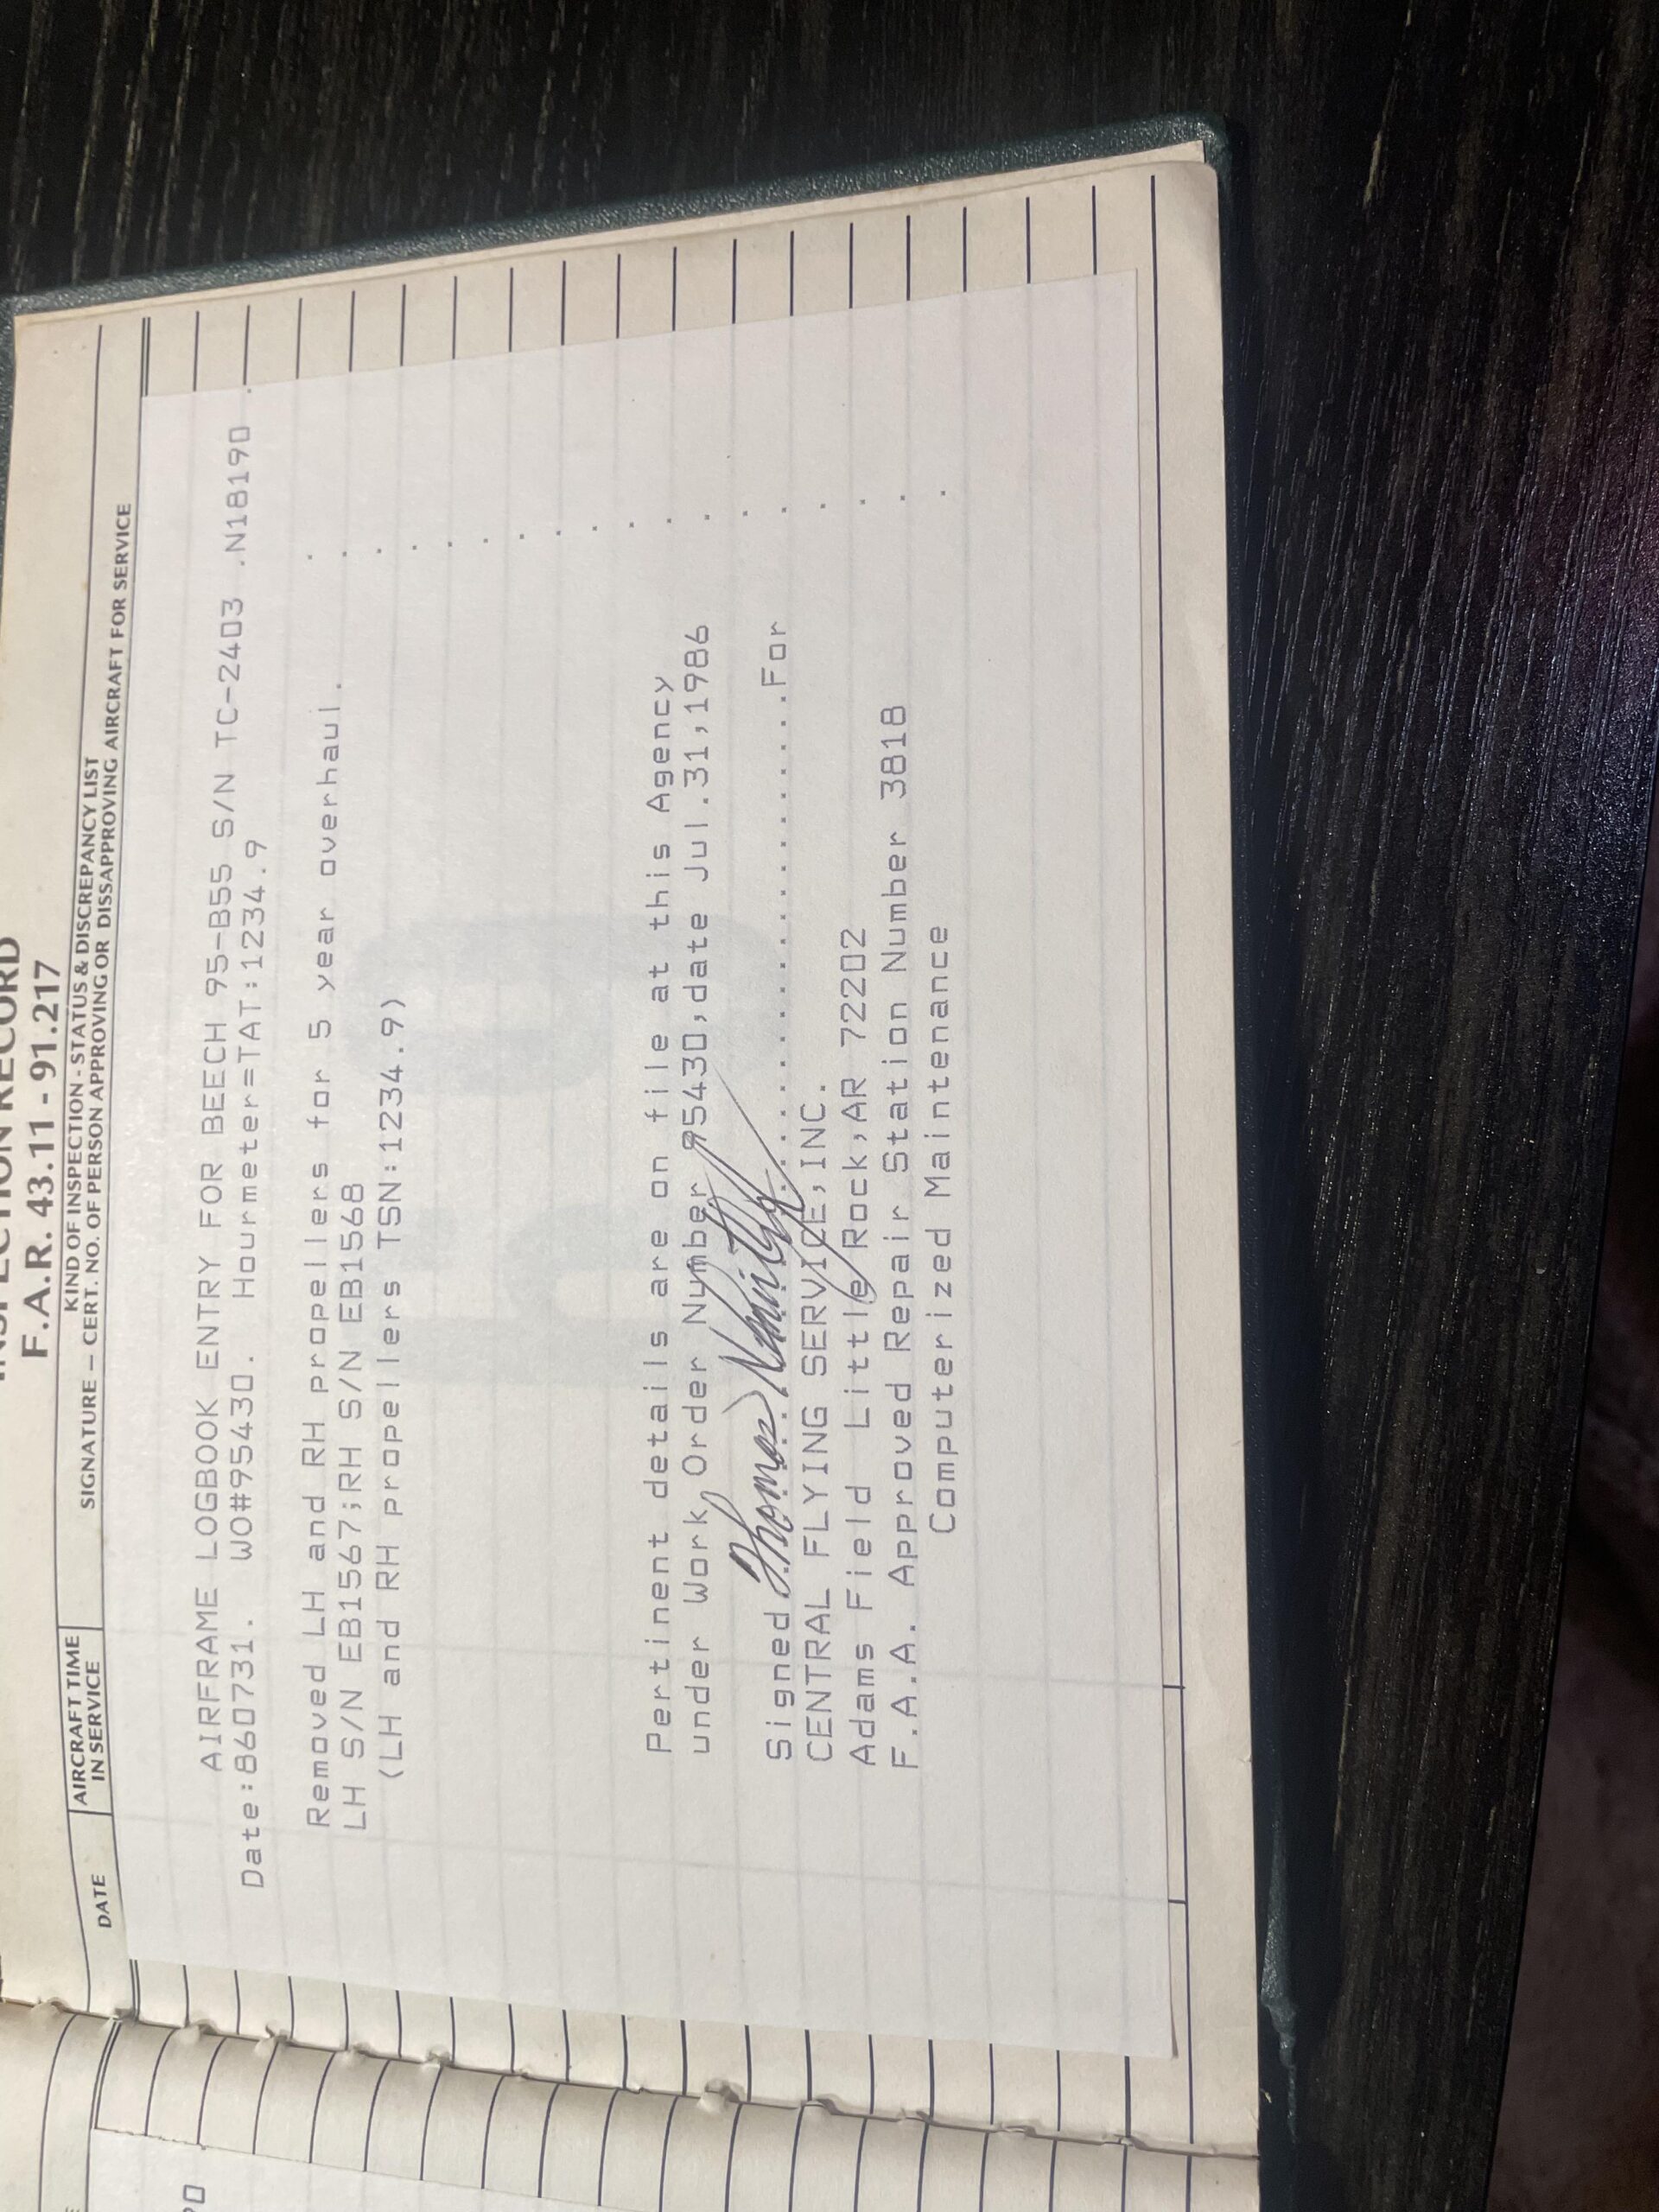 INSPECTION RECORD
F.A.R. 43.11 - 91.217
DATE
AIRCRAFT TIME
IN SERVICE
KIND OF INSPECTION - STATUS & DISCREPANCY LIST
SIGNATURE – CERT. NO. OF PERSON APPROVING OR DISAPPROVING AIRCRAFT FOR SERVICE
AIRFRAME LOGBOOK ENTRY FOR BEECH 95-B55 S/N TC-2403 .N18190
Date:860731. WO#95430. Hourmeter=TAT:1234.9
Removed LH and RH propellers for 5 year overhaul.
LH S/N EB1567;RH S/N EB1568
(LH and RH propellers TSN:1234.9)
Pertinent details are on file at this Agency
under Work Order Number 95430,date Jul.31,1986
Signed Thomas ..............................For
CENTRAL FLYING SERVICE,INC.
Adams Field Little Rock,AR 72202
F.A.A. Approved Repair Station Number 3818
Computerized Maintenance